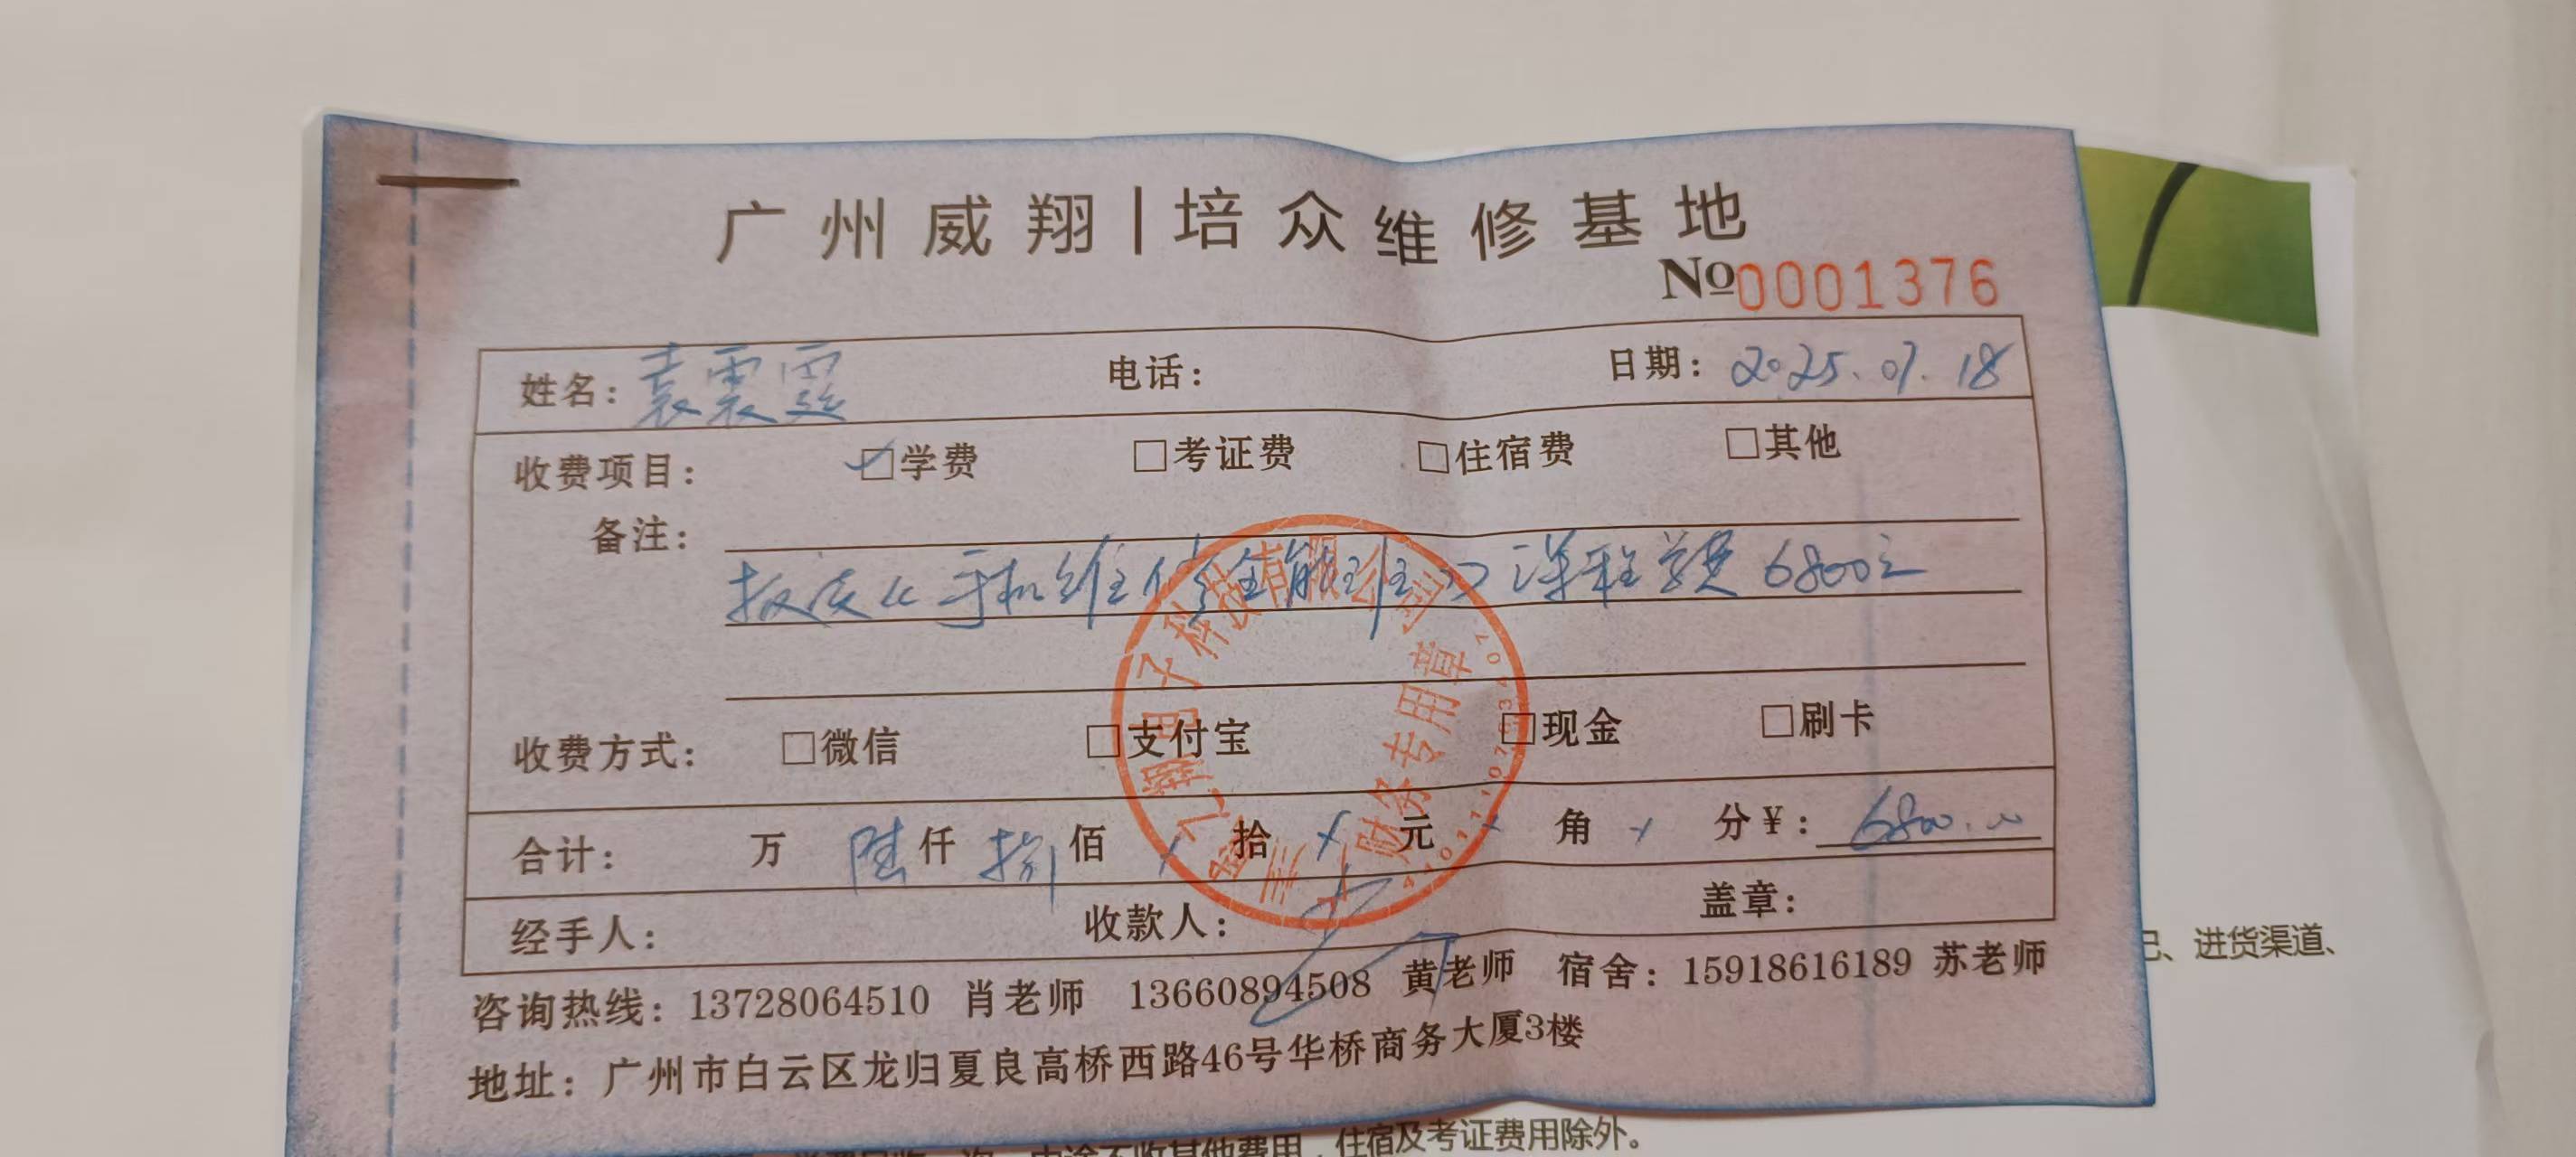 广州威翔|培众维修基地
№0001376
姓名：袁震霆 电话： 日期：2025.07.18
收费项目： ☑学费 □考证费 □住宿费 □其他
备注：
报皮《手机维修全能班》课程学费6800元
收费方式： □微信 □支付宝 □现金 □刷卡
合计： 万 陆仟 捌佰 ×拾 ×元 ×角 ×分¥：6800.00
经手人： 收款人： 盖章：
电子科技有限公司
财务专用章
咨询热线：13728064510 肖老师 13660894508 黄老师 宿舍：15918616189 苏老师
地址：广州市白云区龙归夏良高桥西路46号华桥商务大厦3楼
、进货渠道、
住宿及考证费用除外。